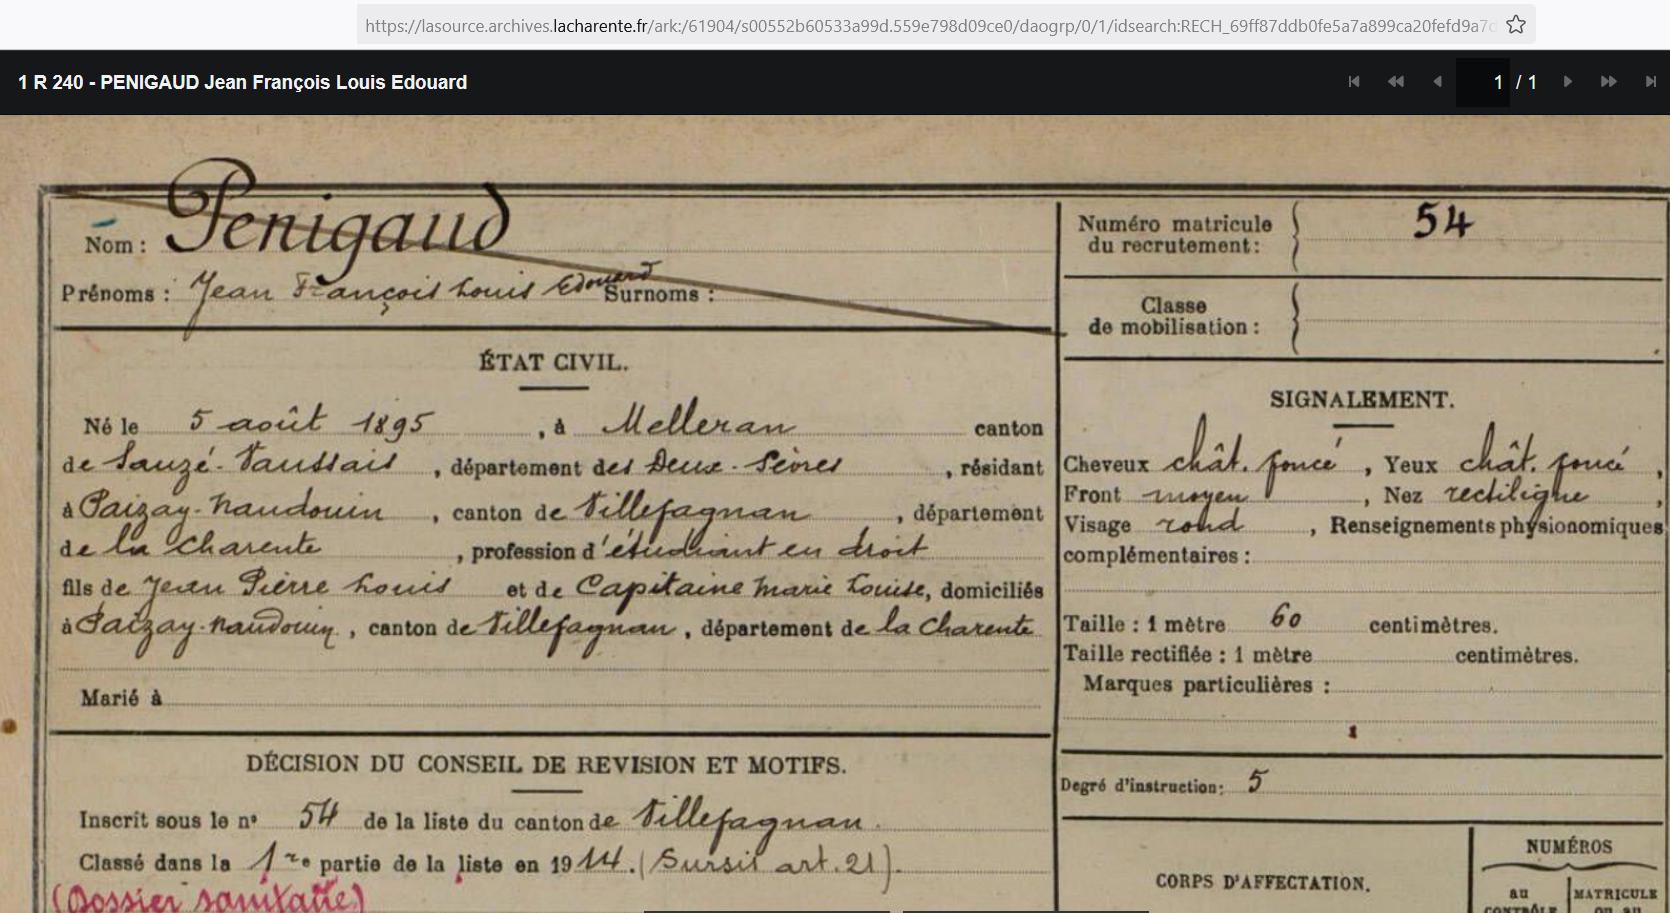 https://lasource.archives.lacharente.fr/ark:/61904/s00552b60533a99d.559e798d09ce0/daogrp/0/1/idsearch:RECH_69ff87ddb0fe5a7a899ca20fefd9a7d
1 R 240 - PENIGAUD Jean François Louis Edouard
1 / 1
Nom : Penigaud
Prénoms : Jean François Louis Edouard Surnoms :
ÉTAT CIVIL.
Né le 5 août 1895, à Melleran canton
de Sauzé-Vaussais, département des Deux-Sèvres, résidant
à Paizay-Naudouin, canton de Villefagnan, département
de la Charente, profession d'étudiant en droit
fils de Jean Pierre Louis et de Capitaine Marie Louise, domiciliés
à Paizay-Naudouin, canton de Villefagnan, département de la Charente
Marié à
DÉCISION DU CONSEIL DE REVISION ET MOTIFS.
Inscrit sous le n° 54 de la liste du canton de Villefagnan.
Classé dans la 1re partie de la liste en 1914. (Sursis art. 21).
(Dossier sanitaire)
Numéro matricule
du recrutement : 54
Classe
de mobilisation :
SIGNALEMENT.
Cheveux chât. foncé, Yeux chât. foncé,
Front moyen, Nez rectiligne,
Visage rond, Renseignements physionomiques
complémentaires :
Taille : 1 mètre 60 centimètres.
Taille rectifiée : 1 mètre centimètres.
Marques particulières :
Degré d'instruction : 5
CORPS D'AFFECTATION.
NUMÉROS
au
CONTRÔLE
MATRICULE
ou au